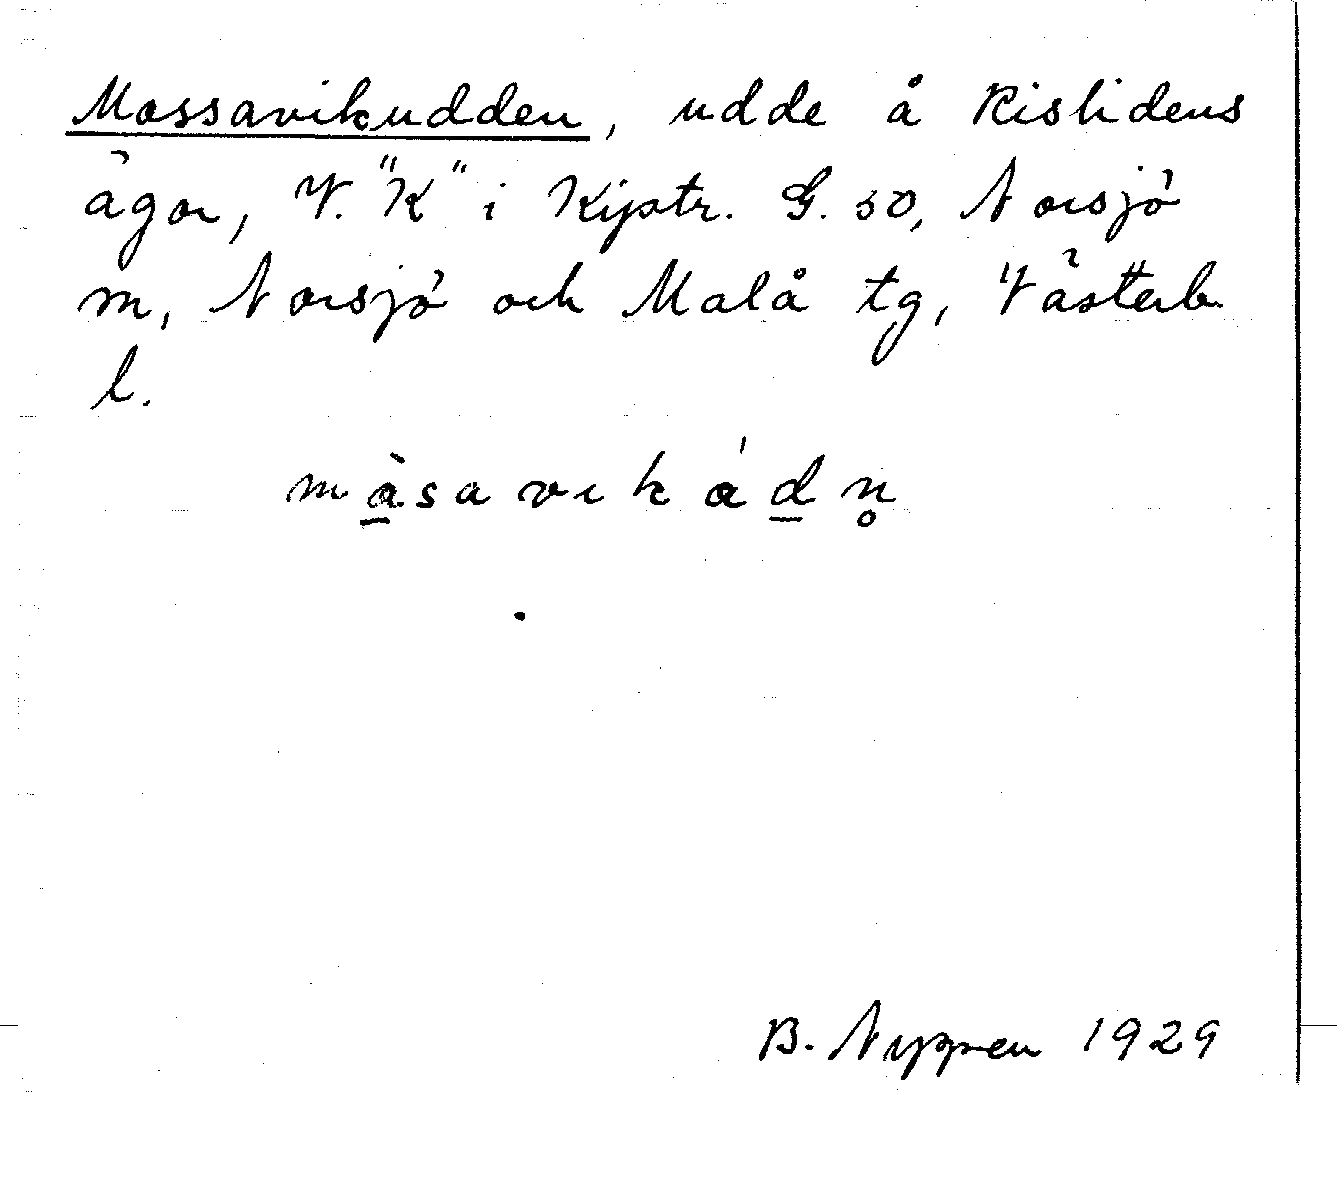 Mossavikudden, udde å Rislidens
ägor, V. "K" i Kijstr. G. 50, Norsjö
m, Norsjö och Malå tg, Västerb
l.
màsavikádn̥
B. Nyppen 1929